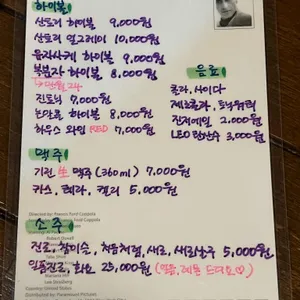 하이볼
산토리 하이볼 9,000원
산토리 얼그레이 10,000원
유자사케 하이볼 9,000원
복분자 하이볼 8,000원
진토닉 7,000원
논알콜 하이볼 8,000원
하우스 와인 RED 7,000원
음료
콜라, 사이다
제로콜라, 토닉워터
진저에일 2,000원
3,000원
맥주
기린 生 맥주 (360ml) 7,000원
카스, 테라, 켈리 5,000원
Directed by: Francis Ford Coppola
소주
진로, 참이슬, 처음처럼, 새로, 5,000원
일품진로, 화요 25,000원 (얼음, 레몬 드려요♡)
Distributed by: Paramount Pictures